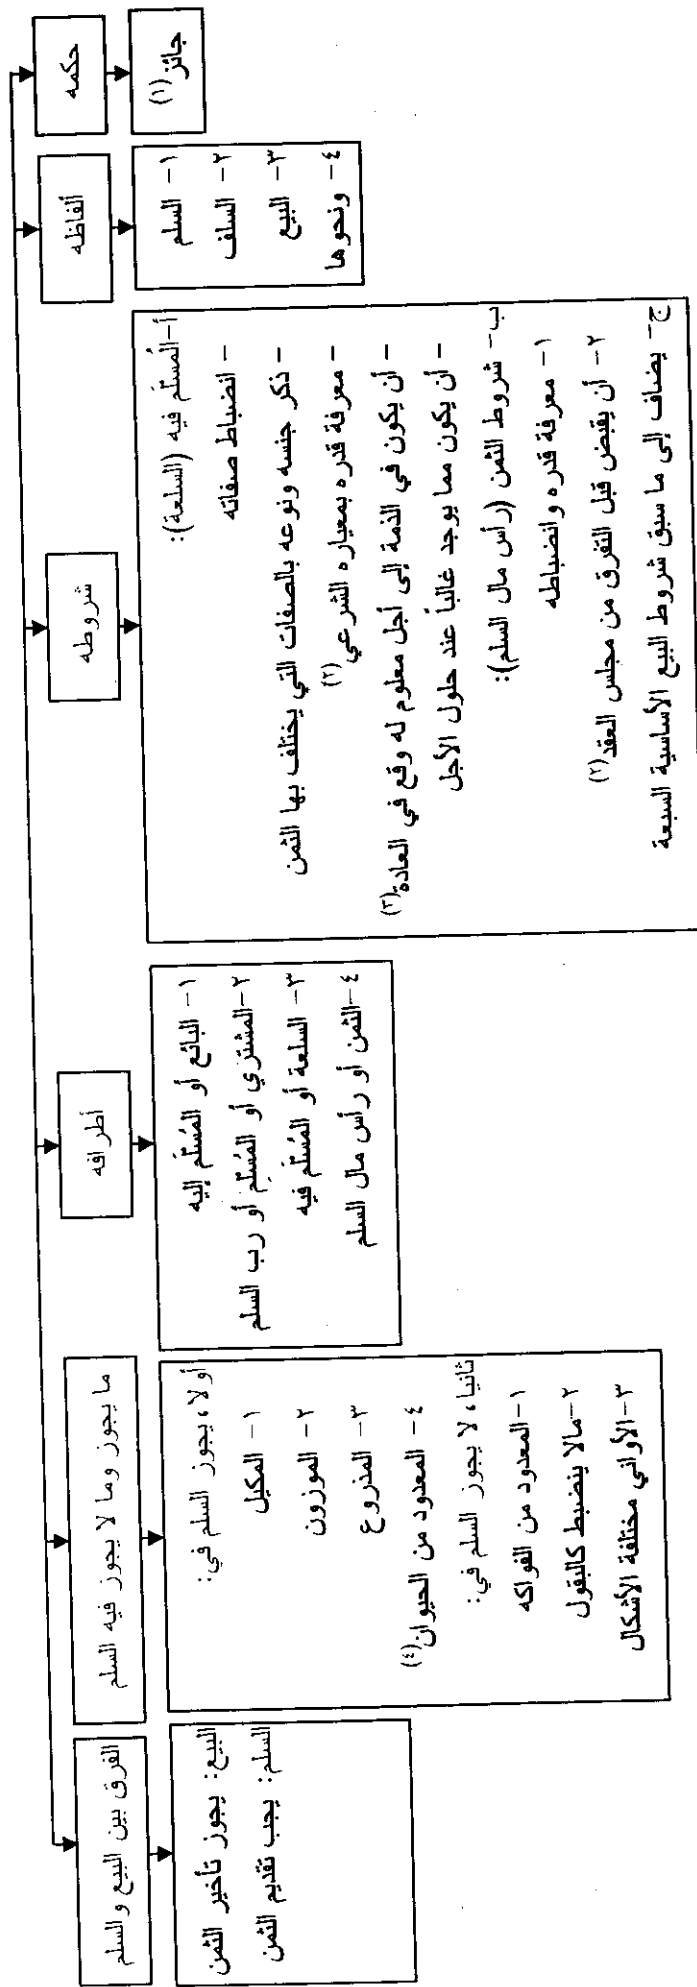 حكمه
جائز(١)
ألفاظه
١- السلم
٢- السلف
٣- البيع
٤- ونحوها
شروطه
أ-المُسلَم فيه (السلعة):
- انضباط صفاته
- ذكر جنسه ونوعه بالصفات التي يختلف بها الثمن
- معرفة قدره بمعياره الشرعي(٢)
- أن يكون في الذمة إلى أجل معلوم له وقع في العادة(٣)
- أن يكون مما يوجد غالباً عند حلول الأجل
ب- شروط الثمن (رأس مال السلم):
١- معرفة قدره وانضباطه
٢- أن يقبض قبل التفرق من مجلس العقد(٢)
ج- يضاف إلى ما سبق شروط البيع الأساسية السبعة
أطرافه
١- البائع أو المُسلَم إليه
٢-المشتري أو المُسلِم أو رب السلم
٣- السلعة أو المُسلَم فيه
٤-الثمن أو رأس مال السلم
ما يجوز وما لا يجوز فيه السلم
أولا، يجوز السلم في:
١- المكيل
٢- الموزون
٣- المذروع
٤- المعدود من الحيوان(٤)
ثانيا، لا يجوز السلم في:
١-المعدود من الفواكه
٢-مالا ينضبط كالبقول
٣-الأواني مختلفة الأشكال
الفرق بين البيع والسلم
البيع: يجوز تأخير الثمن
السلم: يجب تقديم الثمن